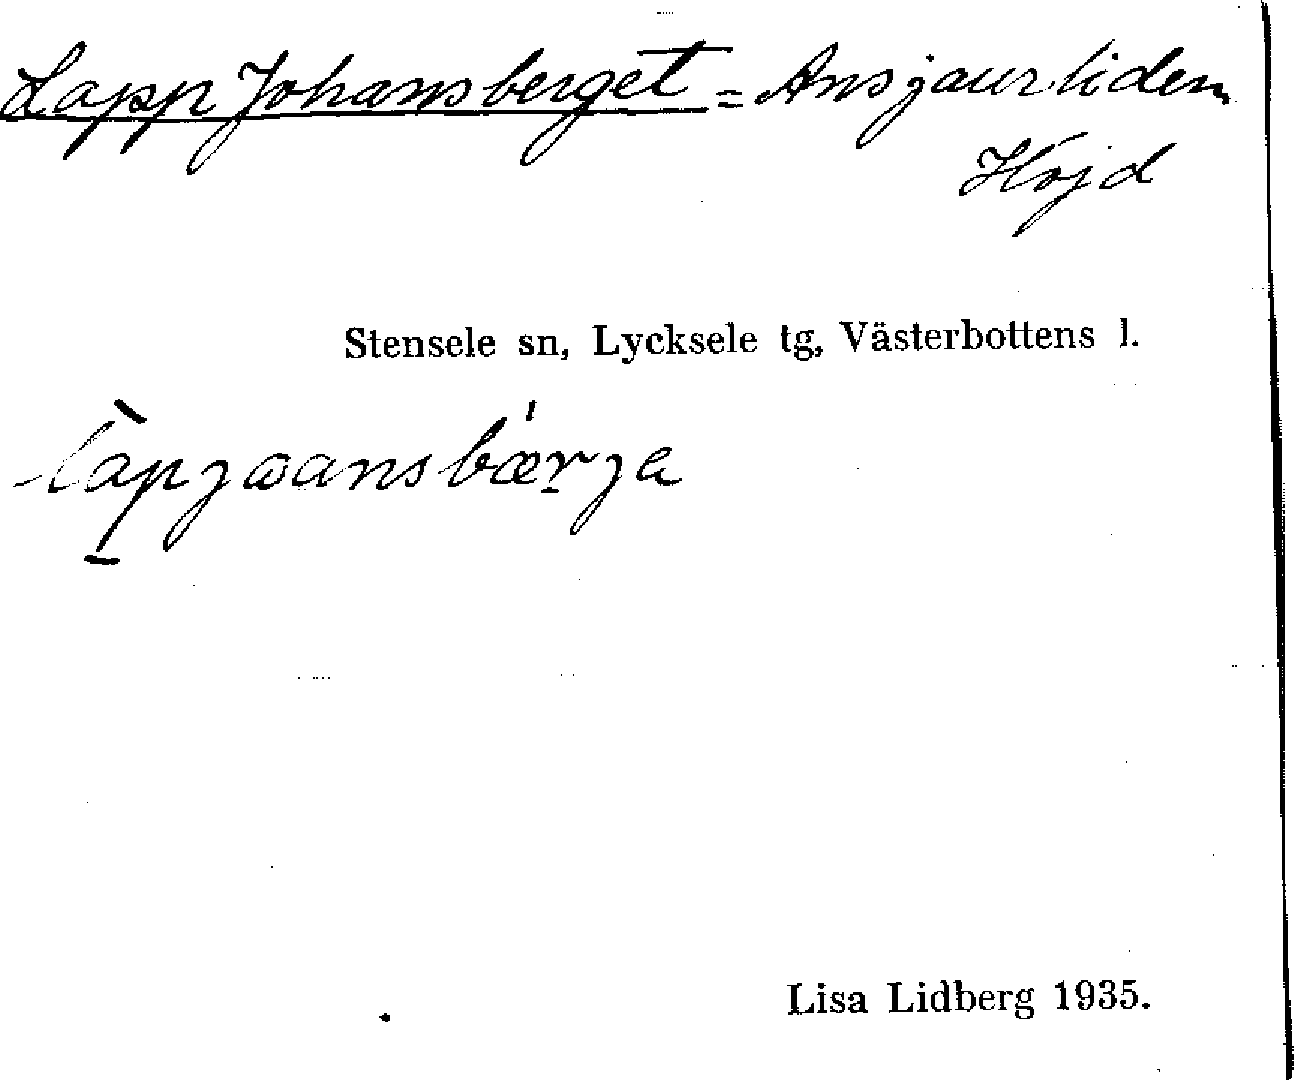 Lapp Johansberget = Ansjaurliden
Höjd
Stensele sn, Lycksele tg, Västerbottens l.
làpjωansbær̲ja
Lisa Lidberg 1935.